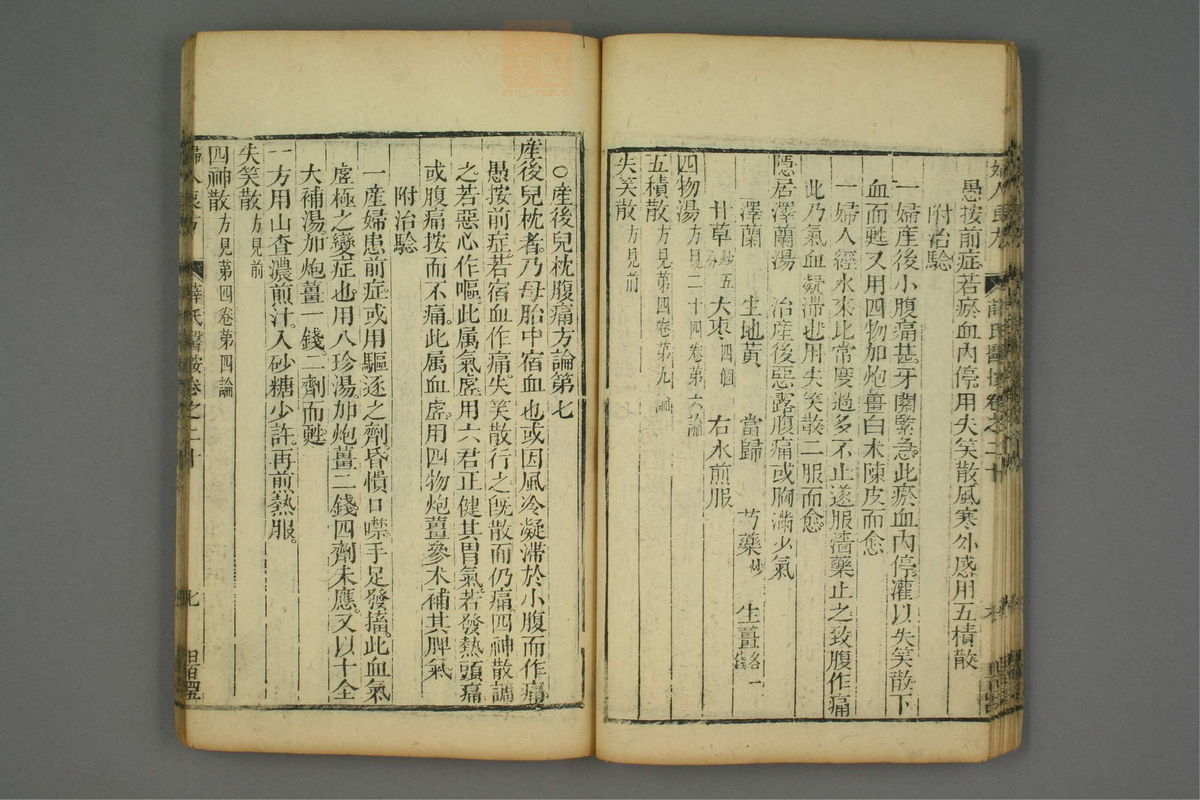 愚按前症若瘀血内停用失笑散風寒外感用五積散
附治驗
一婦産後小腹痛甚牙關緊急此瘀血内停灌以失笑散下
血而甦又用四物加炮薑白朮陳皮而愈
一婦人經水來比常度過多不止遂服澁藥止之致腹作痛
此乃氣血凝滯也用失笑散二服而愈
隱居澤蘭湯 治産後惡露腹痛或胸滿少氣
澤蘭 生地黄 當歸 芍藥炒 生薑各一錢
甘草炒五分 大棗四個 右水煎服
四物湯方見二十四卷第六論
五積散方見第四卷第九論
失笑散方見前
○産後兒枕腹痛方論第七
産後兒枕者。乃母胎中宿血也或因風冷凝滯於小腹而作痛
愚按前症若宿血作痛失笑散行之既散而仍痛。四神散調
之若惡心作嘔。此属氣虛。用六君正健其胃氣。若發熱頭痛
或腹痛按而不痛。此属血虛。用四物炮薑參朮補其脾氣
附治驗
一産婦患前症或用驅逐之劑。昏憒口噤。手足發搐。此血氣
虛極之變症也。用八珍湯。加炮薑二錢四劑未應。又以十全
大補湯。加炮薑一錢。二劑而甦。
一方用山查濃煎汁。入砂糖少許。再煎熱服。
失笑散方見前
四神散方見第四卷第四論
婦人良方 薛氏醫按卷之二十